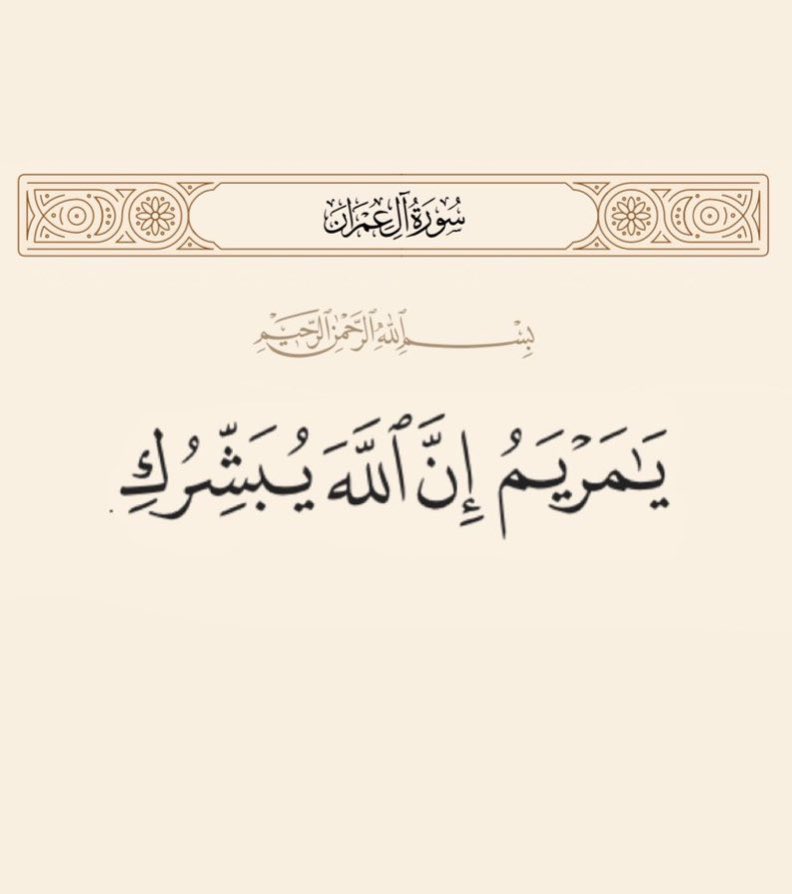 سُورَةُ آلِ عِمْرَان
بِسْمِ ٱللَّهِ ٱلرَّحْمَٰنِ ٱلرَّحِيمِ
يَٰمَرْيَمُ إِنَّ ٱللَّهَ يُبَشِّرُكِ